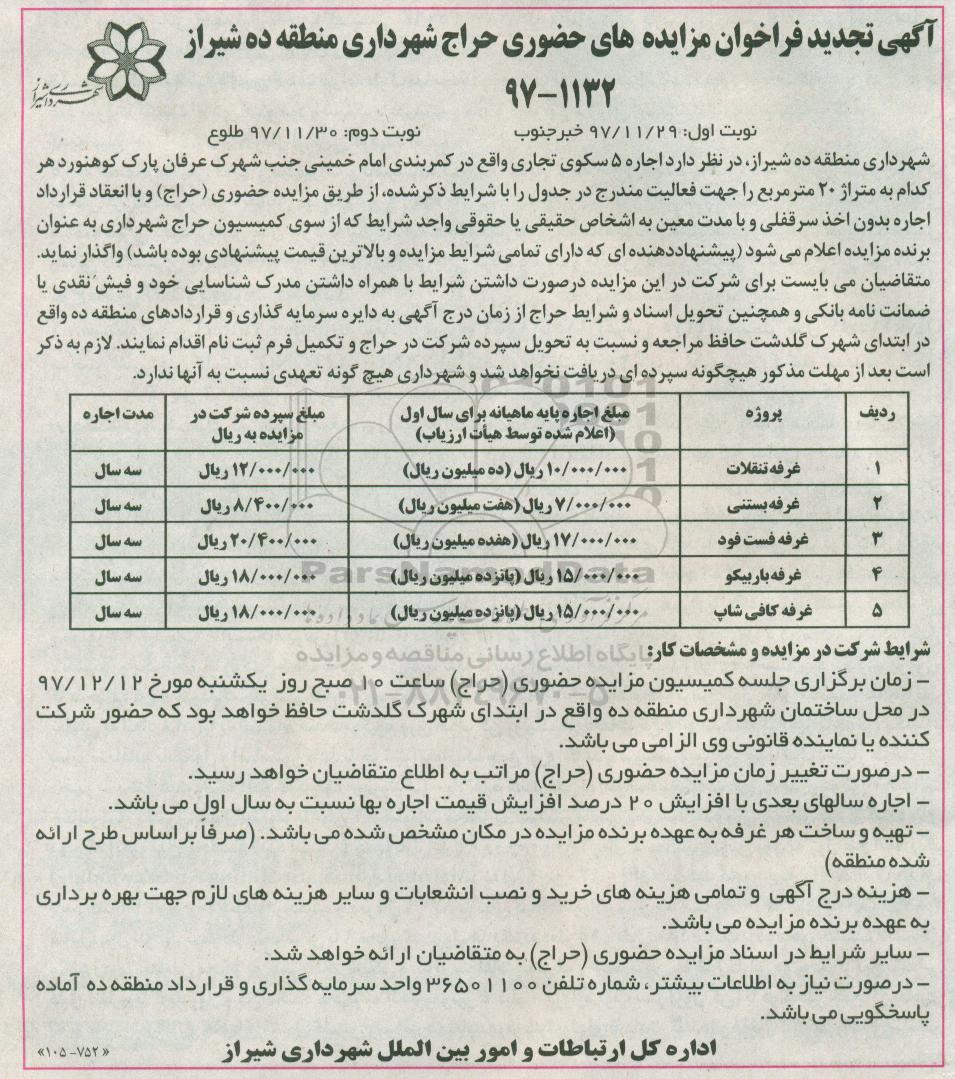 آگهی تجدید فراخوان مزایده های حضوری حراج شهرداری منطقه ده شیراز
۹۷-۱۱۳۲
شهرداری شیراز
نوبت اول: ۹۷/۱۱/۲۹ خبرجنوب نوبت دوم: ۹۷/۱۱/۳۰ طلوع
شهرداری منطقه ده شیراز، در نظر دارد اجاره ۵ سکوی تجاری واقع در کمربندی امام خمینی جنب شهرک عرفان پارک کوهنورد هر
کدام به متراژ ۲۰ مترمربع را جهت فعالیت مندرج در جدول را با شرایط ذکر شده، از طریق مزایده حضوری (حراج) و با انعقاد قرارداد
اجاره بدون اخذ سرقفلی و با مدت معین به اشخاص حقیقی یا حقوقی واجد شرایط که از سوی کمیسیون حراج شهرداری به عنوان
برنده مزایده اعلام می شود (پیشنهاددهنده ای که دارای تمامی شرایط مزایده و بالاترین قیمت پیشنهادی بوده باشد) واگذار نماید.
متقاضیان می بایست برای شرکت در این مزایده درصورت داشتن شرایط با همراه داشتن مدرک شناسایی خود و فیش نقدی یا
ضمانت نامه بانکی و همچنین تحویل اسناد و شرایط حراج از زمان درج آگهی به دایره سرمایه گذاری و قراردادهای منطقه ده واقع
در ابتدای شهرک گلدشت حافظ مراجعه و نسبت به تحویل سپرده شرکت در حراج و تکمیل فرم ثبت نام اقدام نمایند. لازم به ذکر
است بعد از مهلت مذکور هیچگونه سپرده ای دریافت نخواهد شد و شهرداری هیچ گونه تعهدی نسبت به آنها ندارد.
ردیف پروژه مبلغ اجاره پایه ماهیانه برای سال اول (اعلام شده توسط هیأت ارزیاب) مبلغ سپرده شرکت در مزایده به ریال مدت اجاره
۱ غرفه تنقلات ۱۰/۰۰۰/۰۰۰ ریال (ده میلیون ریال) ۱۲/۰۰۰/۰۰۰ ریال سه سال
۲ غرفه بستنی ۷/۰۰۰/۰۰۰ ریال (هفت میلیون ریال) ۸/۴۰۰/۰۰۰ ریال سه سال
۳ غرفه فست فود ۱۷/۰۰۰/۰۰۰ ریال (هفده میلیون ریال) ۲۰/۴۰۰/۰۰۰ ریال سه سال
۴ غرفه باربیکو ۱۵/۰۰۰/۰۰۰ ریال (پانزده میلیون ریال) ۱۸/۰۰۰/۰۰۰ ریال سه سال
۵ غرفه کافی شاپ ۱۵/۰۰۰/۰۰۰ ریال (پانزده میلیون ریال) ۱۸/۰۰۰/۰۰۰ ریال سه سال
ParsNamadData
پایگاه اطلاع رسانی مناقصه و مزایده
شرایط شرکت در مزایده و مشخصات کار:
- زمان برگزاری جلسه کمیسیون مزایده حضوری (حراج) ساعت ۱۰ صبح روز یکشنبه مورخ ۹۷/۱۲/۱۲
در محل ساختمان شهرداری منطقه ده واقع در ابتدای شهرک گلدشت حافظ خواهد بود که حضور شرکت
کننده یا نماینده قانونی وی الزامی می باشد.
- درصورت تغییر زمان مزایده حضوری (حراج) مراتب به اطلاع متقاضیان خواهد رسید.
- اجاره سالهای بعدی با افزایش ۲۰ درصد افزایش قیمت اجاره بها نسبت به سال اول می باشد.
- تهیه و ساخت هر غرفه به عهده برنده مزایده در مکان مشخص شده می باشد. (صرفاً براساس طرح ارائه
شده منطقه)
- هزینه درج آگهی و تمامی هزینه های خرید و نصب انشعابات و سایر هزینه های لازم جهت بهره برداری
به عهده برنده مزایده می باشد.
- سایر شرایط در اسناد مزایده حضوری (حراج) به متقاضیان ارائه خواهد شد.
- درصورت نیاز به اطلاعات بیشتر، شماره تلفن ۳۶۵۰۱۱۰۰ واحد سرمایه گذاری و قرارداد منطقه ده آماده
پاسخگویی می باشد.
اداره کل ارتباطات و امور بین الملل شهرداری شیراز
«۱۰۵-۷۵۲»